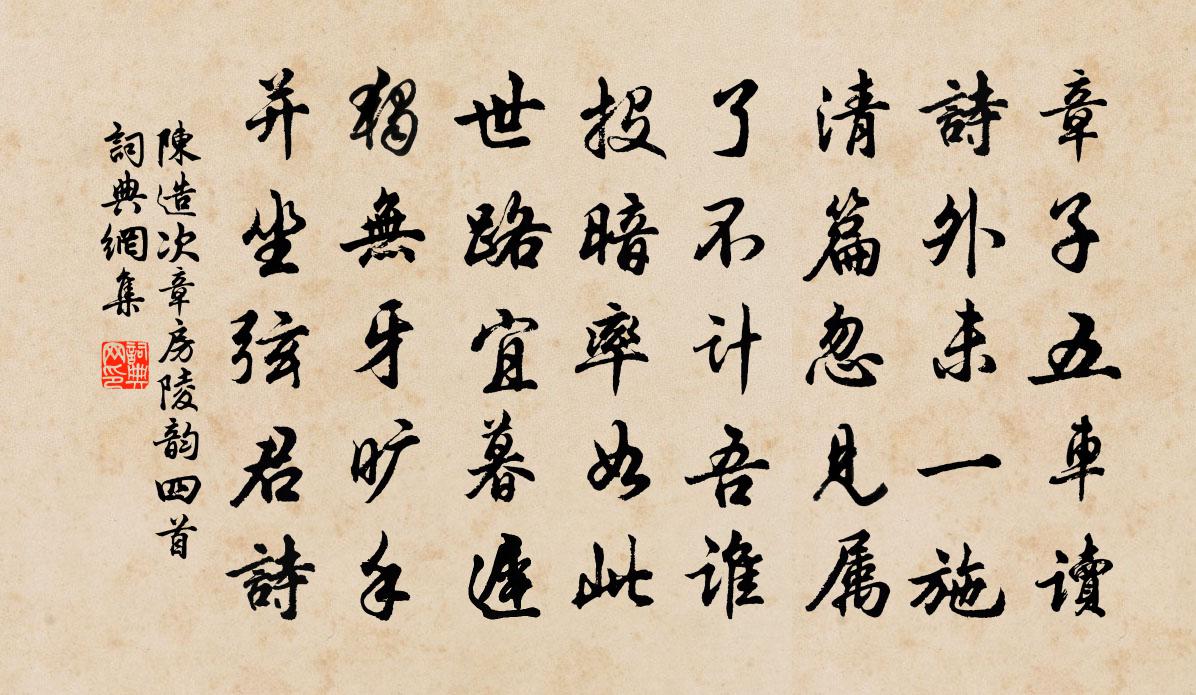 章子五車讀
詩外未一施
清篇忽見属
了不计吾谁
投暗率如此
世路宜暮遲
猶無牙旷手
并坐弦君詩
陳造次章房陵韵四首
詞典網集
詞典網印